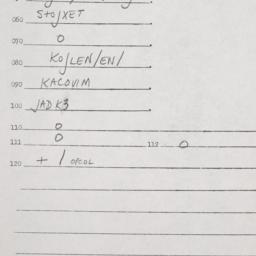 060 STOJXET
070 0
080 KOJLEN/EN/
090 KACOVIM
100 JADK3
110 0
111 0 112 0
120 + 1